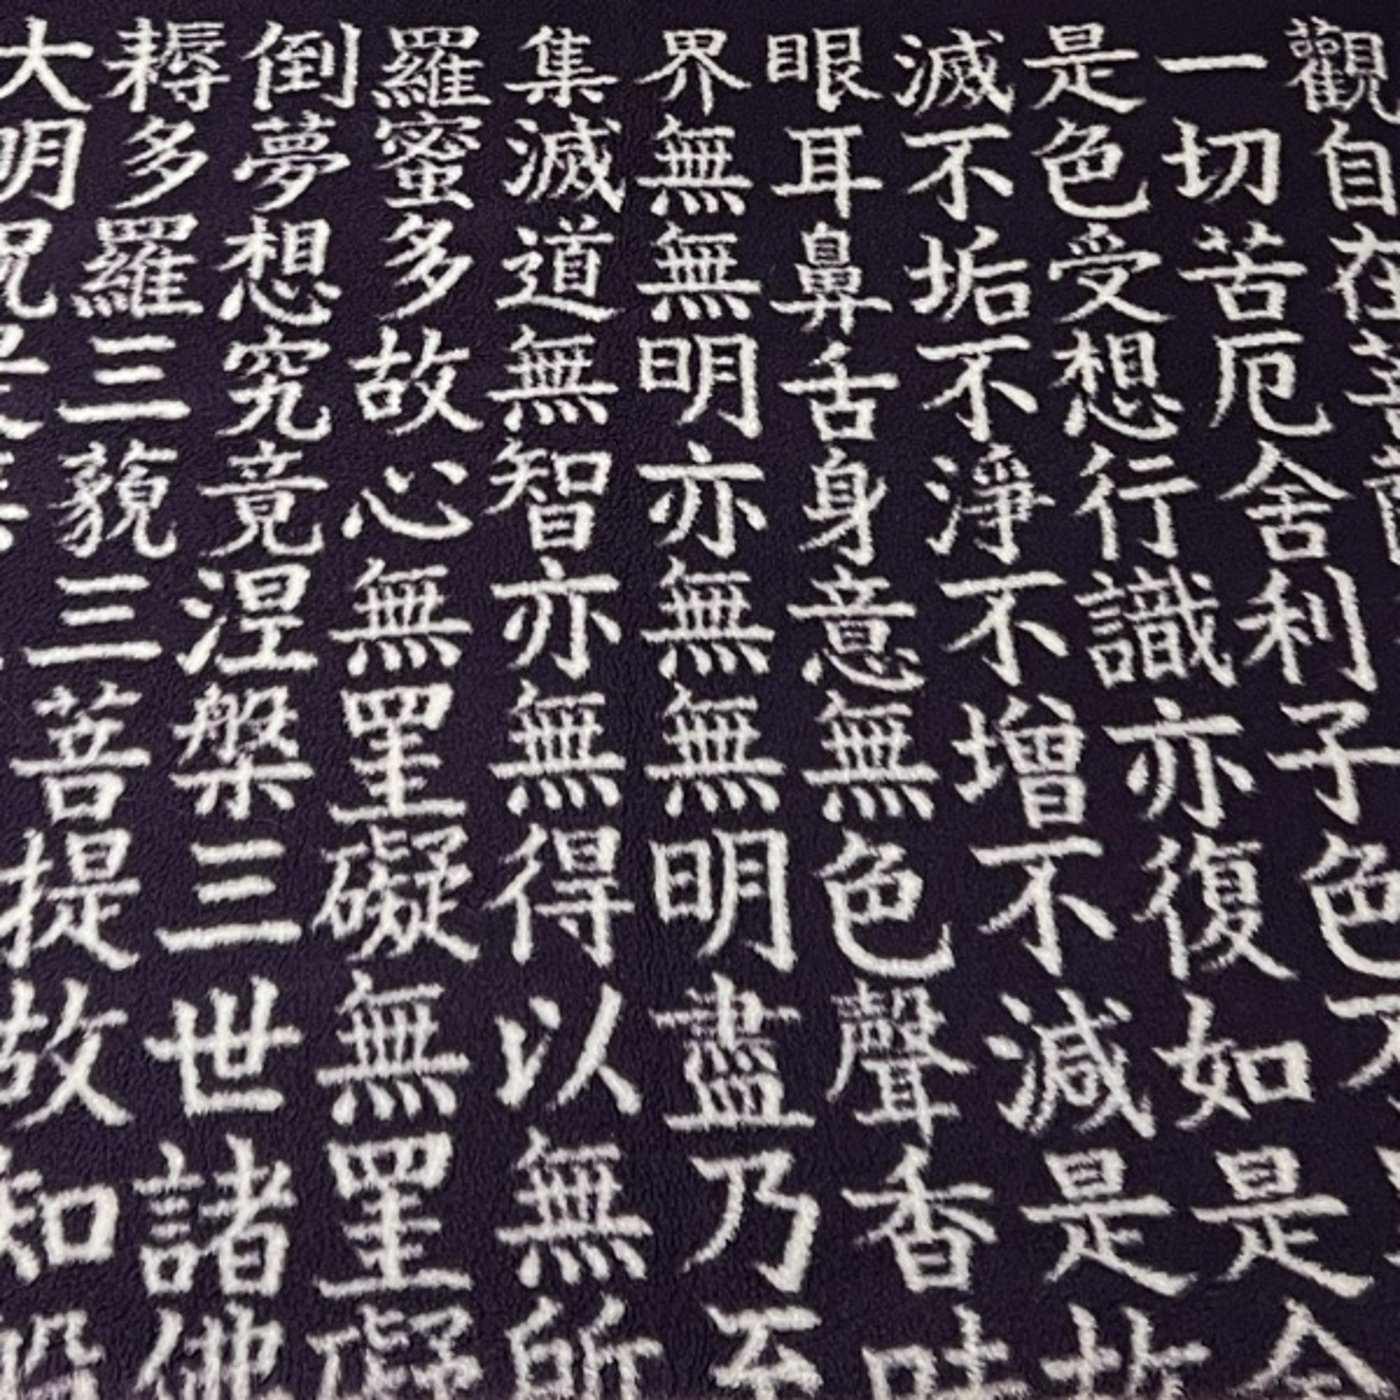 觀自在菩
一切苦厄舍利子色不
是色受想行識亦復如是舍
滅不垢不淨不增不減是故
眼耳鼻舌身意無色聲香味
界無無明亦無無明盡乃至
集滅道無智亦無得以無所
羅蜜多故心無罣礙無罣礙
倒夢想究竟涅槃三世諸佛
耨多羅三藐三菩提故知般
大明呪是